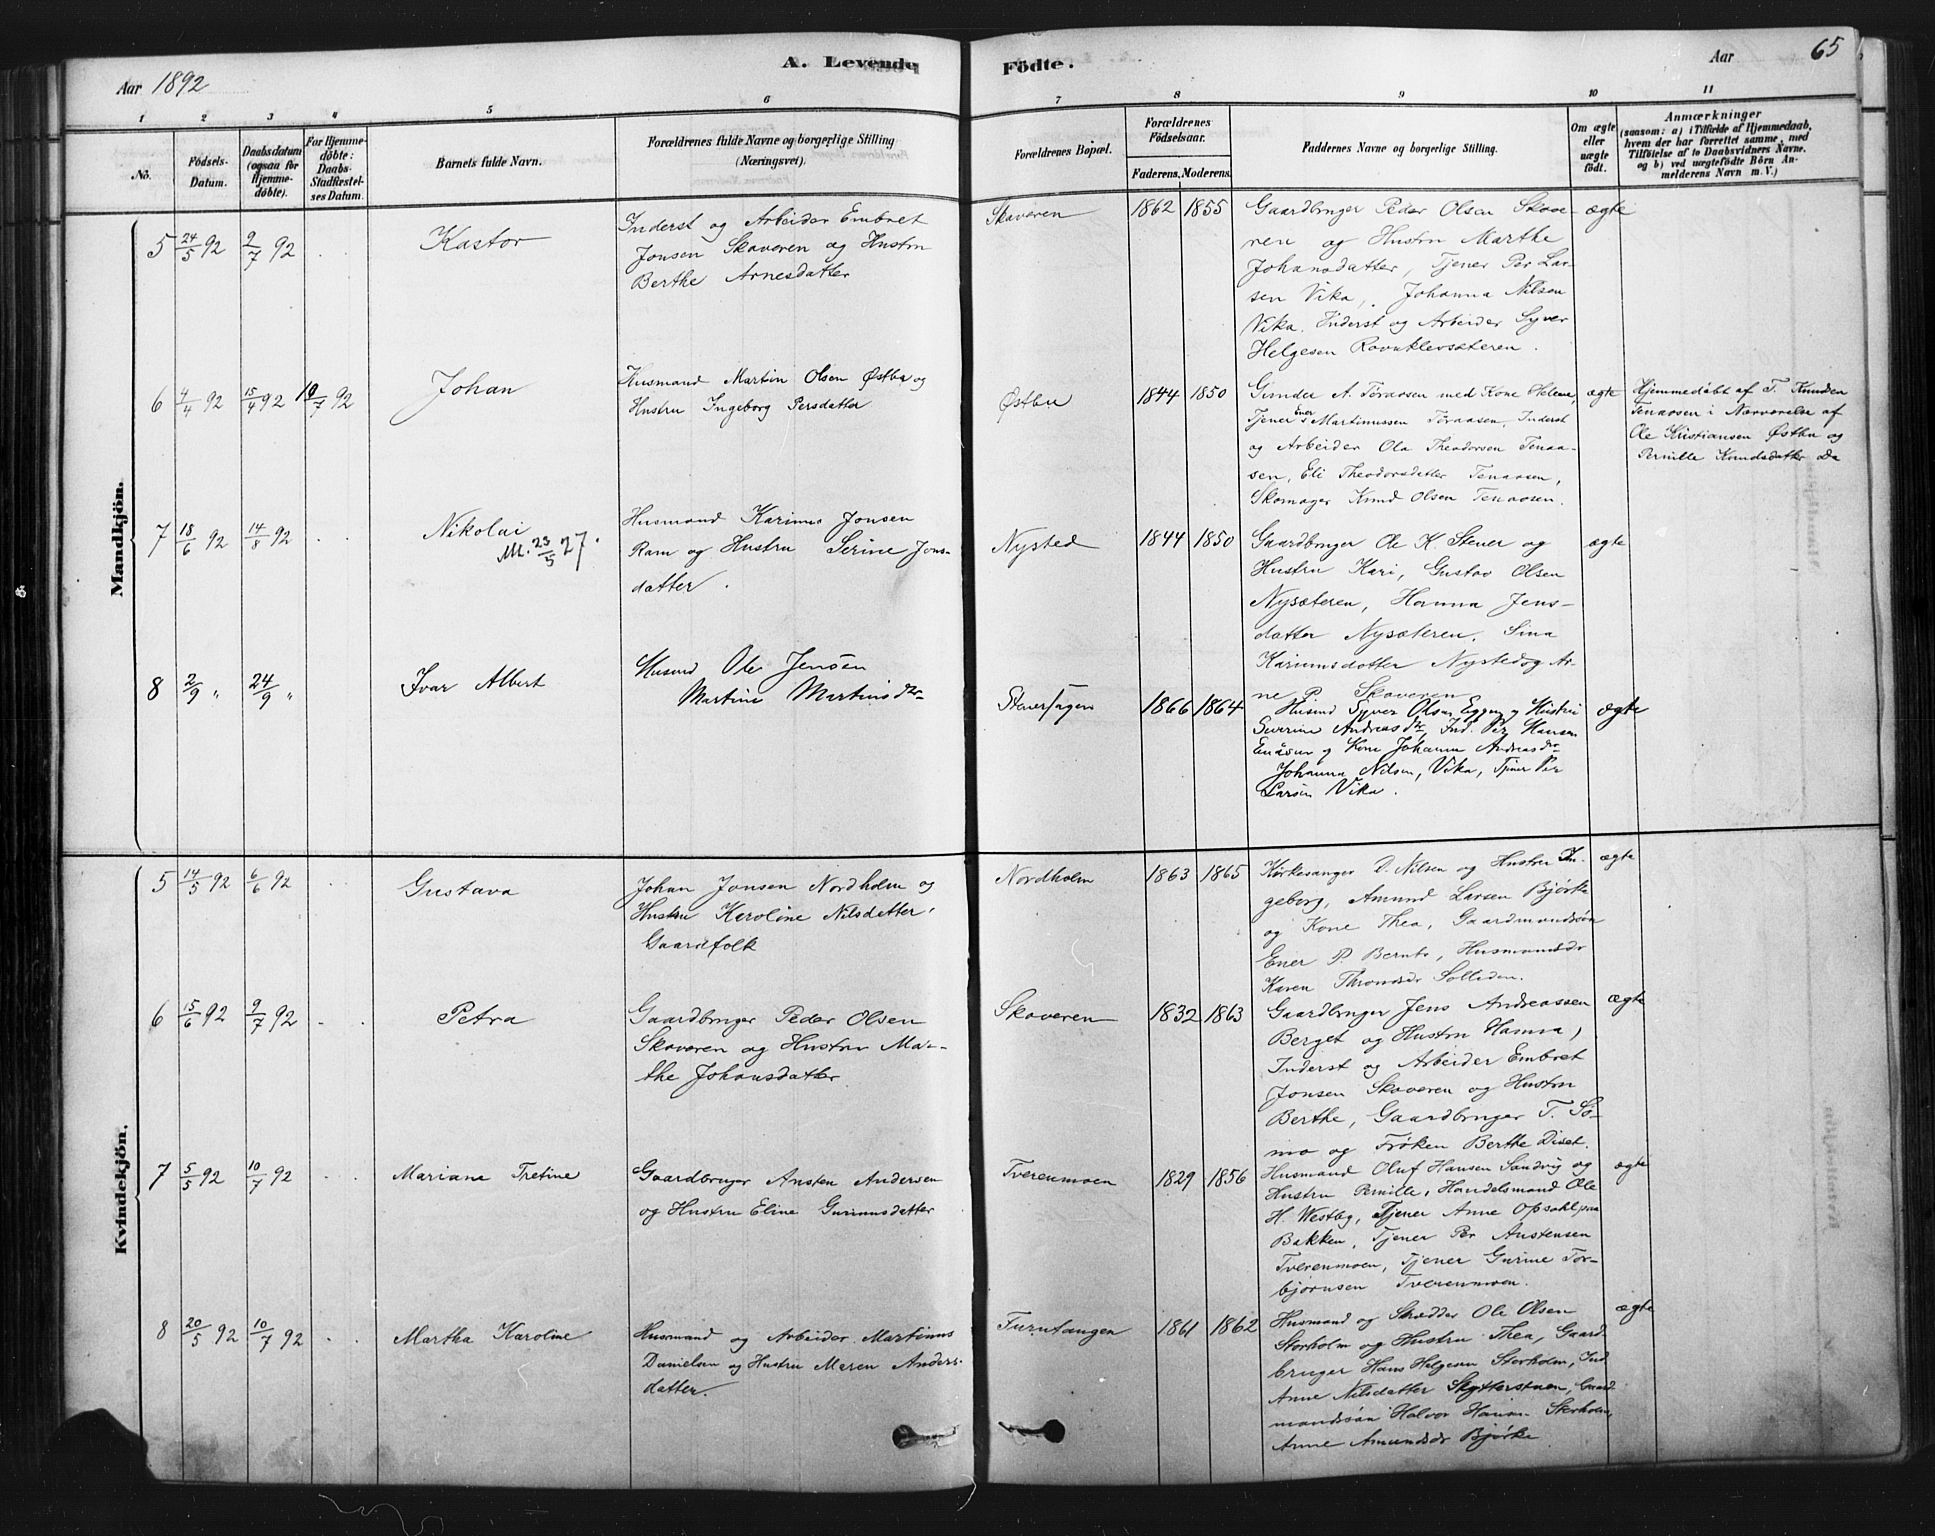 Aar 1892
A. Levende
Födte.
Aar
65
1 2 3 4 5 6 7 8 9 10 11
No.
Födsels-
Datum.
Daabsdatum
(ogsaa for
Hjemme-
döbte).
For Hjemme-
döbte:
Daabs-
Stadfæstel-
ses Datum.
Barnets fulde Navn.
Forældrenes fulde Navne og borgerlige Stilling
(Næringsvei).
Forældrenes Bopæl.
Forældrenes
Födselsaar.
Faderens. Moderens.
Faddernes Navne og borgerlige Stilling.
Om ægte
eller
uægte
födt.
Anmærkninger
(saasom: a) i Tilfælde af Hjemmedaab,
hvem der har forrettet samme, med
Tilföielse af to Daabsvidners Navne.
og b) ved uægtefödte Börn An-
melderens Navn m. V.)
Mandkjön.
5 24/5 92 9/7 92 . .
Kastor
Inderst og Arbeider Embret
Jonsen Skaveren og Hustru
Berthe Arnesdatter
Skaveren 1862 1855
Gaardbruger Peder Olsen Skave-
ren og Hustru Marthe
Johansdatter, Tjener Per Lar-
sen Vika, Johanna Nilsen
Vika. Inderst og Arbeider Syver
Helgesen
ægte
6 4/4 92 15/4 92 10/7 92
Johan
Husmand Martin Olsen Østbu og
Hustru Ingeborg Persdatter
Østbu 1844 1850
Gunder A. Toraasen med Kone Helene,
Tjener Ener Martinussen Toraasen, Inderst
og Arbeider Ola Theodorsen Tenaa-
sen, Eli Theodorsdatter Tenaasen,
Skomager Knud Olsen Tenaasen.
ægte
Hjemmedøbt af T. Knudsen
Tenaasen i Nærværelse af
Ole Kristiansen Østbu og
Pernille Knudsdatter Do
7 18/6 92 14/8 92 . .
Nikolai
M. 23/5 27.
Husmand Karinus Jonsen
Ram og Hustru Serine Jons-
datter.
Nysted 1844 1850
Gaardbruger Ole K. Stener og
Hustru Kari, Gustav Olsen
Nysæteren, Hanna Jens-
datter Nysæteren, Sina
Karinusdatter Nysted og Ar-
ne P. Skaveren
ægte
8 2/9 " 24/9 "
Ivar Albert
Husmd Ole Jensen
Martine Martinsdtr
1866 1864
Husmd Syver Olsen Eggen og Hustru
Severine Andreasdtr, Ind. Per Hansen
og Kone Johanna Andreasdtr
Johanna Nilsen, Vika, Tjener Per
Larsen Vika.
ægte
Kvindekjön.
5 14/5 92 6/6 92 . .
Gustava
Johan Jonsen Nordholm og
Hustru Karoline Nilsdatter,
Gaardfolk
Nordholm 1863 1865
Kirkesanger D. Nilsen og Hustru In-
geborg, Amund Larsen Bjørke
og Kone Thea, Gaardmandssøn
Ener P. Bernts, Husmandsdr
Karen Throndsdr Solliden.
ægte
6 15/6 92 9/7 92 . .
Petra
Gaardbruger Peder Olsen
Skaveren og Hustru Mar-
the Johansdatter
Skaveren 1832 1863
Gaardbruger Jens Andreassen
Berget og Hustru Hanna,
Inderst og Arbeider Embret
Jonsen Skaveren og Hustru
Berthe, Gaardbruger T. Sö-
mo og Frøken Berthe Diset.
ægte
7 5/5 92 10/7 92 . .
Mariane Tretine
Gaardbruger Ansten Andersen
og Hustru Eline Gunnusdatter
Tverenmoen 1829 1856
Husmand Oluf Hansen Sandvig og
Hustru Pernille, Handelsmand Ole
H. Westby, Tjener Anne Opsahl paa
Bakken, Tjener Per Anstensen
Tverenmoen, Tjener Gurine Tor-
bjørnsen Tverenmoen.
ægte
8 20/5 92 10/7 92 . .
Martha Karoline
Husmand og Arbeider Martinus
Danielsen og Hustru Maren Anders-
datter.
Furutangen 1861 1862
Husmand og Skrædder Ole Olsen
Storholm og Hustru Thea, Gaard-
bruger Hans Helgesen Storholm, Ind
Anne Nilsdatter Skytterstuen, Gaard-
mandssøn Halvor Hansen Storholm,
Anne Amundsdr Bjørke
ægte